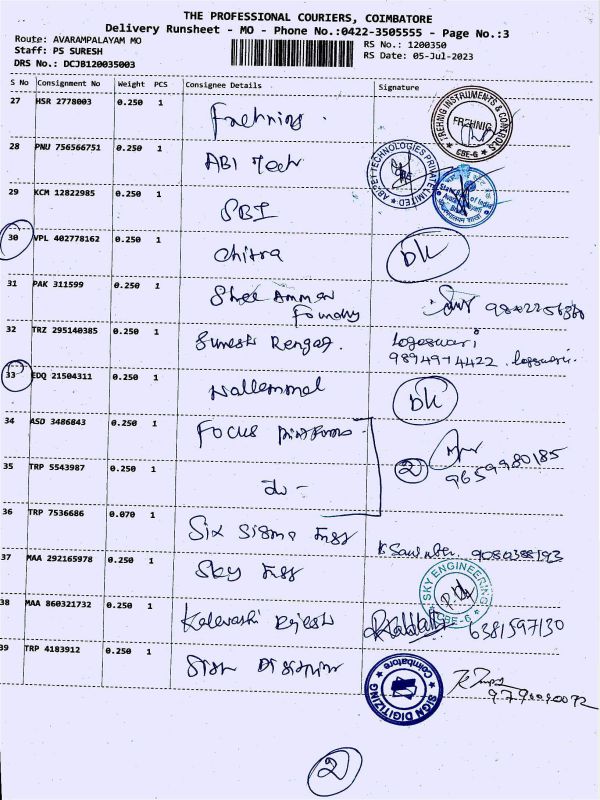 THE PROFESSIONAL COURIERS, COIMBATORE
Delivery Runsheet - MO - Phone No.:0422-3505555 - Page No.:3
Route: AVARAMPALAYAM MO
RS No.: 1200350
Staff: PS SURESH
RS Date: 05-Jul-2023
DRS No.: DCJB120035003
S No Consignment No Weight PCS Consignee Details Signature
27 HSR 2778003 0.250 1 Frehning.
FREHNIG INSTRUMENTS & CONTROLS
FREHNIG
CBE-6
28 PNU 756566751 0.250 1 ABI Tech
TECHNOLOGIES PRIVATE LIMITED
29 KCM 12822985 0.250 1 SBI
30 VPL 402778162 0.250 1 chitra bk
31 PAK 311599 0.250 1 Shree Amman
foundry
32 TRZ 295140385 0.250 1 Suresh Rengaa. Logeswari
33 EDQ 21504311 0.250 1 Nallammal bk
34 ASD 3486843 0.250 1 FOCUS
2 9659980185
35 TRP 5543987 0.250 1 do -
36 TRP 7536686 0.070 1 Six Sigma Engg
37 MAA 292165978 0.250 1 Sky Engg
SKY ENGINEERING
CBE-6
38 MAA 860321732 0.250 1 6381597130
39 TRP 4183912 0.250 1 Sign
SIGN DIGITIZING
Coimbatore
2